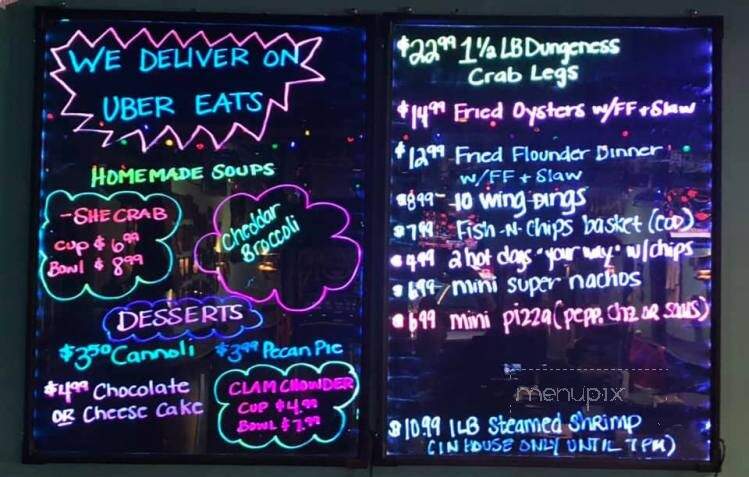 WE DELIVER ON
UBER EATS
HOMEMADE SOUPS
-SHE CRAB
CUP $ 6.99
Bowl $ 8.99
Cheddar
Broccoli
DESSERTS
$3.50 Cannoli
$3.99 Pecan Pie
$4.99 Chocolate
OR Cheese Cake
CLAM CHOWDER
CUP $4.99
BOWL $7.99
$22.99 1½ LB Dungeness
Crab Legs
$14.99 Fried Oysters w/FF + Slaw
$12.99 Fried Flounder Dinner
w/FF + Slaw
$8.99- 10 Wing Dings
$7.99 Fish-N-Chips basket (COD)
$4.99 2 hot dogs "your way" w/chips
$6.99- mini super nachos
$6.99 mini pizza (pepp, chz OR saus)
menupix
$10.99 1LB Steamed Shrimp
(IN HOUSE ONLY UNTIL 7PM)